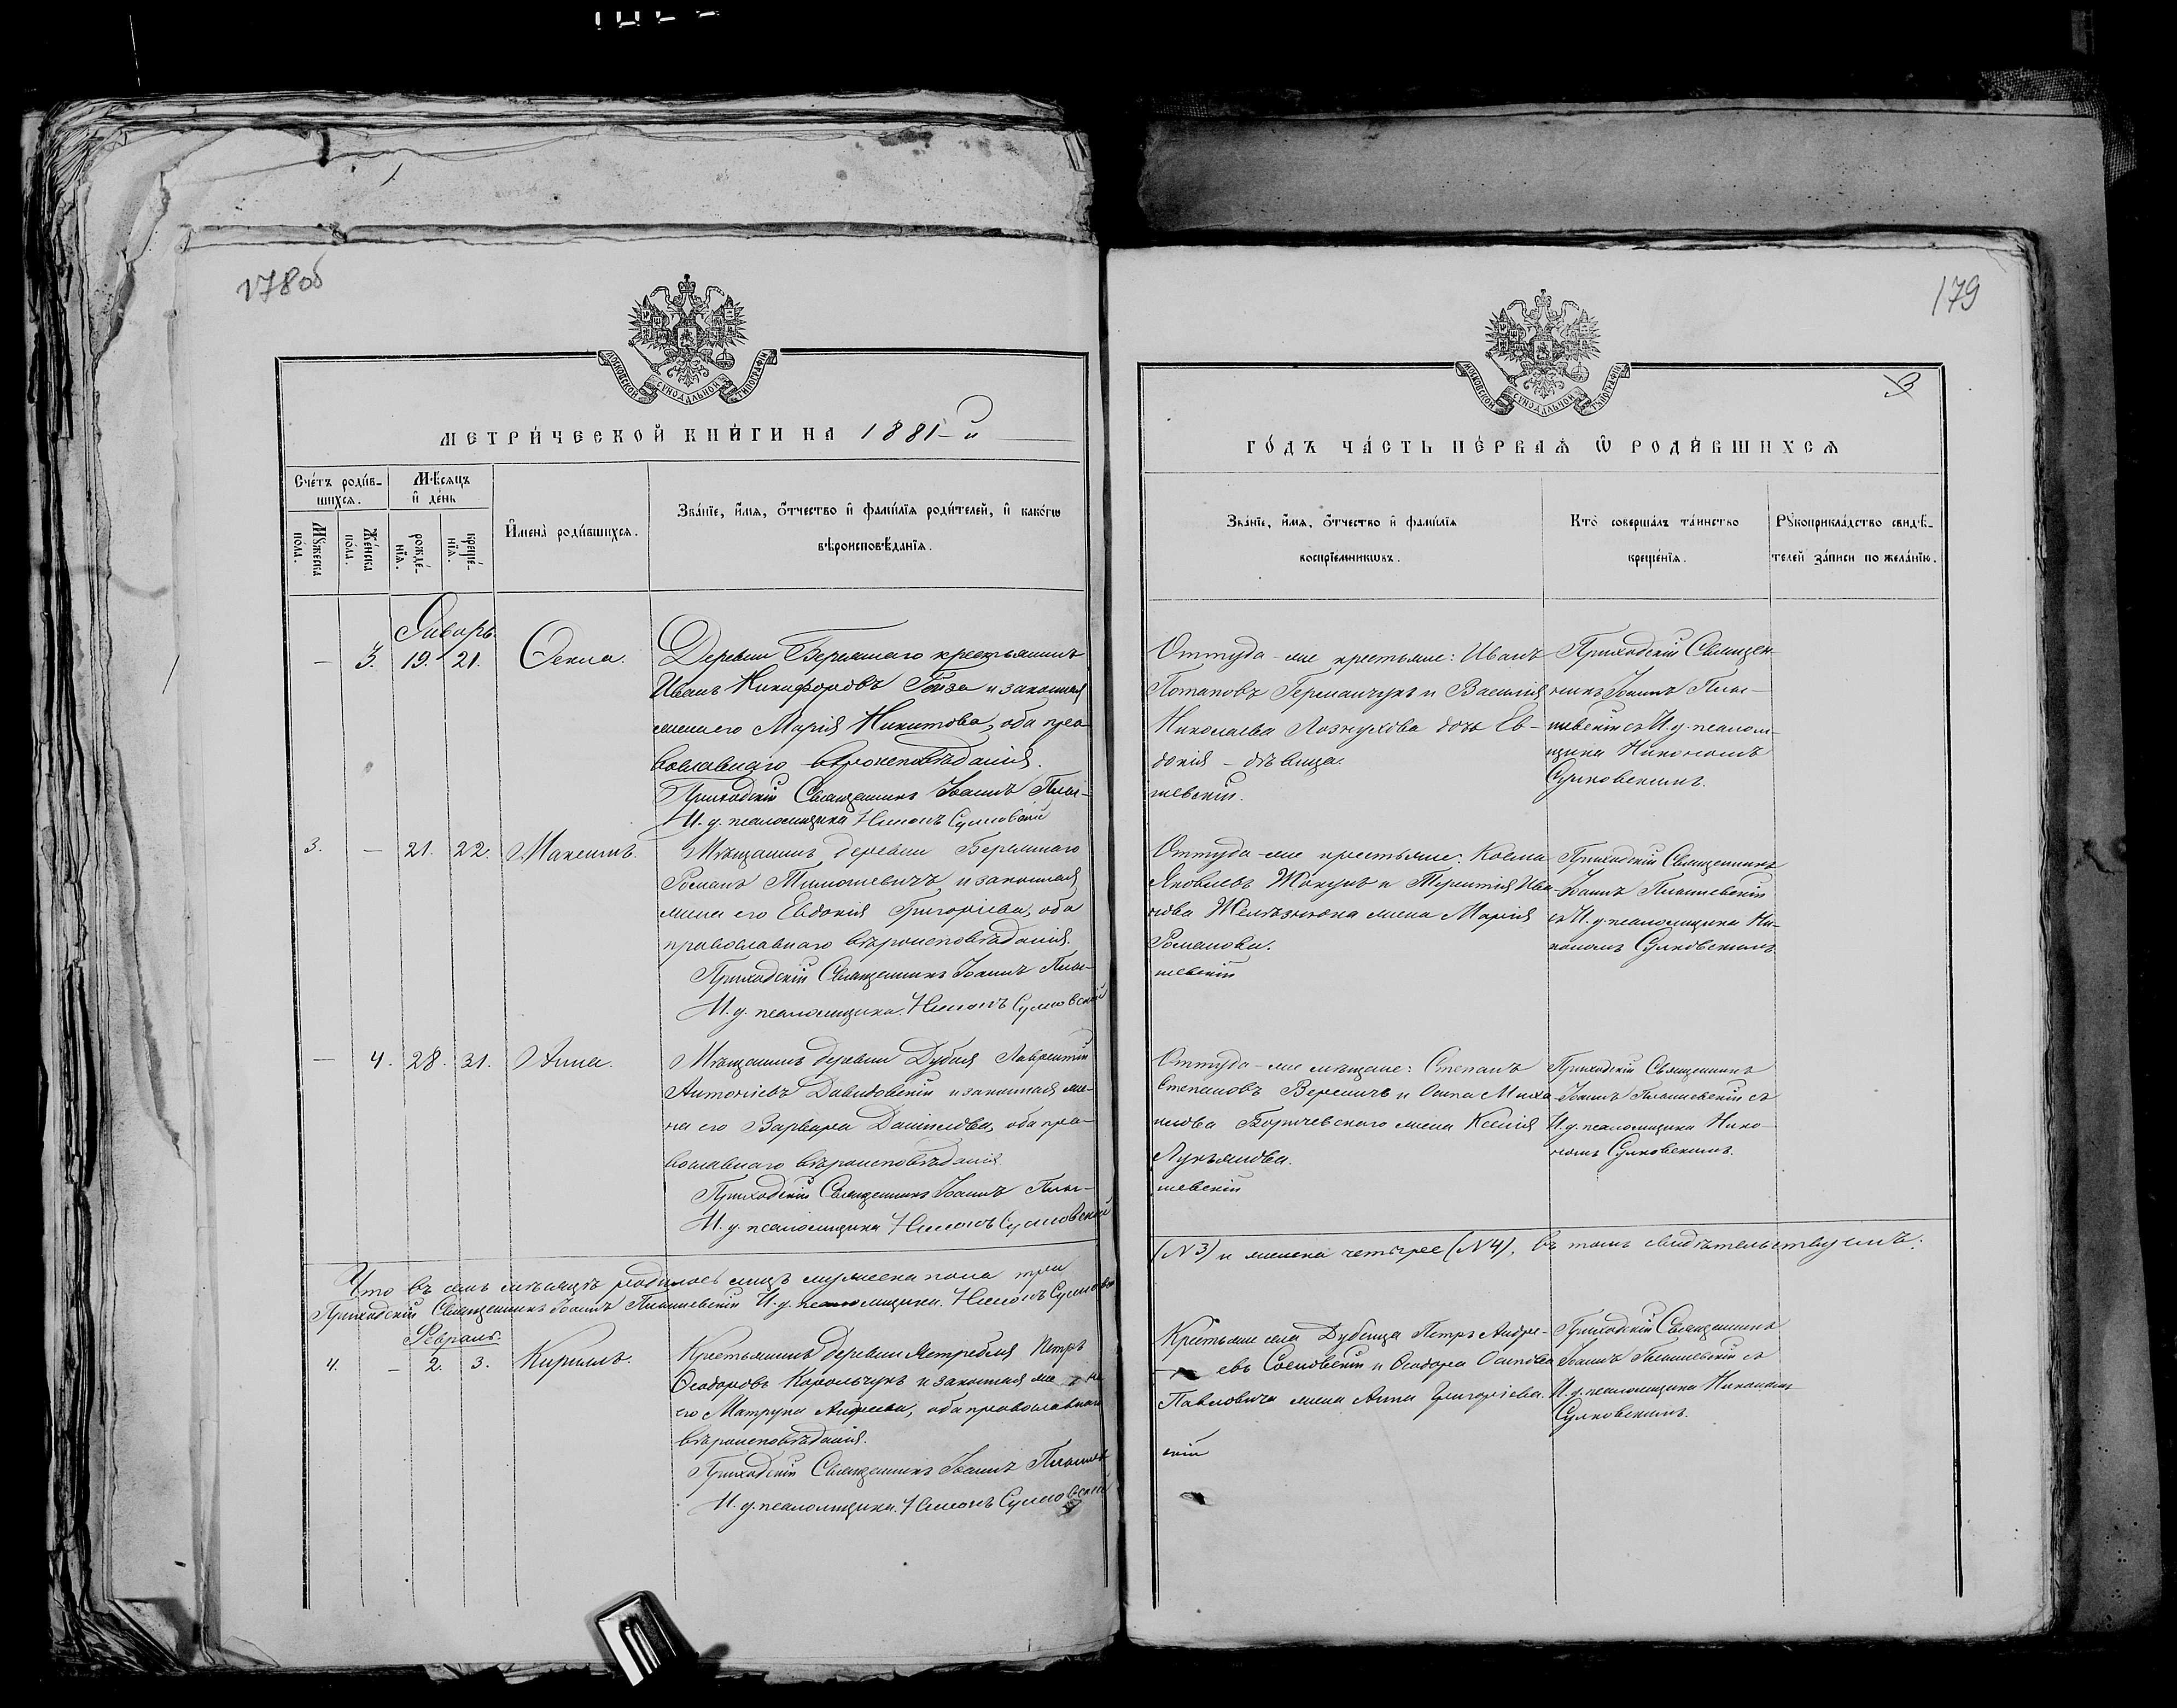 178об
МОСКОВСКОЙ СѴНОДАЛЬНОЙ ТИПОГРАФІИ
МЕТРИ́ЧЕСКОЙ КНИ́ГИ НА 1881-й
Сче́тъ роди́в-
шихся.
Мѣ́сяцъ
и҆ де́нь
Мꙋ́жеска
по́ла.
Же́нска
по́ла.
рожде́-
нїя.
креще́-
нїя.
И҆мена̀ роди́вшихся.
Зва́нїе, и҆́мя, ѻ҆́тчество и҆ фами́лїя роди́телей, и҆ како́гѡ
вѣроисповѣ́данїя.
Январь.
— 3. 19. 21. Ѳекла.
Деревни Бережнаго крестьянинъ
Иванъ Никифоровъ и законная
жена его Марія Никитова, оба пра-
вославнаго вѣроисповѣданія.
Приходскій Священникъ Іоаннъ
И. д. псаломщика Никонъ
3. — 21. 22. Максимъ.
Мѣщанинъ деревни Бережнаго
Романъ и законная
жена его Евдокія Григоріева, оба
православнаго вѣроисповѣданія.
Приходскій Священникъ Іоаннъ
И. д. псаломщика Никонъ
— 4. 28. 31. Анна.
Мѣщанинъ деревни Лаврентій
Антоніевъ Давидовскій и законная же-
на его Варвара Даниилова, оба пра-
вославнаго вѣроисповѣданія.
Приходскій Священникъ Іоаннъ
И. д. псаломщика Никонъ
Что въ семъ мѣсяцѣ родилось лицъ мужеска пола три
Приходскій Священникъ Іоаннъ И. д. псаломщика Никонъ
Февраль.
4. — 2. 3. Кириллъ.
Крестьянинъ деревни Петръ
Ѳеодоровъ Корольчукъ и законная жена
его Матрона Андреева, оба православнаго
вѣроисповѣданія.
Приходскій Священникъ Іоаннъ
И. д. псаломщика Никонъ
179
3
МОСКОВСКОЙ СѴНОДАЛЬНОЙ ТИПОГРАФІИ
ГО́ДЪ ЧА́СТЬ ПЕ́РВАЯ Ѡ҆ РОДИ́ВШИХСЯ
Зва́нїе, и҆́мя, ѻ҆́тчество и҆ фами́лїя
воспрїе́мникѡвъ.
Кто̀ соверша́лъ та́инство
креще́нїя.
Рꙋкоприкла́дство свидѣ́-
телей за́писи по жела́нїю.
Оттуда-же крестьяне: Иванъ
Потаповъ Германчукъ и Василія
Николаева дочь Ев-
докія - дѣвица.
шевскій.
Приходскій Священ-
никъ Іоаннъ
шевскій съ И. д. псалом-
щика Никономъ
Оттуда-же крестьяне: Косма
Яковлевъ и Терентія Ива-
нова жена Марія
Романова.
шевскій
Приходскій Священникъ
Іоаннъ
съ И. д. псаломщика Ни-
кономъ
Оттуда-же мѣщане: Степанъ
Степановъ Вереничъ и Осипа Миха-
илова Боричевскаго жена Ксенія
Лукьянова.
шевскій
Приходскій Священникъ
Іоаннъ съ
И. д. псаломщика Нико-
номъ
(N 3) и женска четыре (N 4), въ томъ свидѣтельствуемъ:
Крестьяне села Петръ Андре-
евъ Сосновскій и Ѳеодора Осипова
Павловича жена Анна Григоріева.
скій
Приходскій Священникъ
Іоаннъ съ
И. д. псаломщика Никономъ